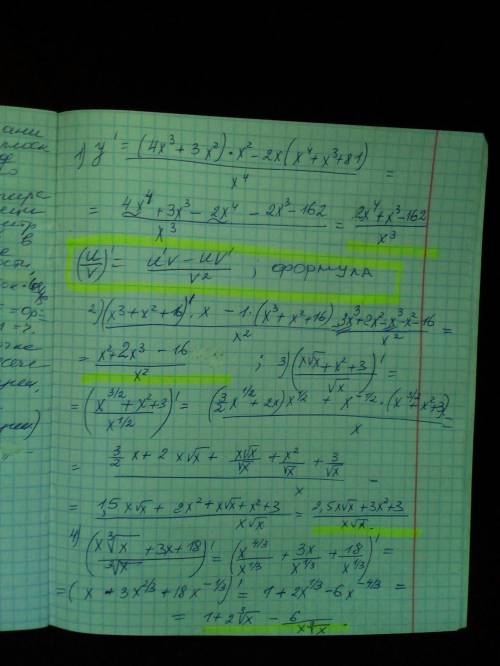 1) y' = (4x³+3x²)·x² - 2x(x⁴+x³+81) / x⁴ =
= 4x⁴+3x³-2x⁴-2x³-162 / x³ = 2x⁴+x³-162 / x³
(u/v)' = u'v - uv' / v² ; формула
2) (x³+x²+16)'·x - 1·(x³+x²+16) / x² = 3x³+2x²-x³-x²-16 / x² =
= x²+2x³-16 / x² ; 3) (x√x+x²+3 / √x)' =
= (x^(3/2)+x²+3 / x^(1/2))' = (3/2 x^(1/2)+2x)x^(1/2) + x^(-1/2)·(x^(3/2)+x²+3) / x =
= 3/2 x+2x√x + x√x/√x + x²/√x + 3/√x / x =
= 1,5x√x+2x²+x√x+x²+3 / x√x = 2,5x√x+3x²+3 / x√x.
4) (x∛x+3x+18 / ∛x)' = (x^(4/3)/x^(1/3) + 3x/x^(1/3) + 18/x^(1/3))' =
= (x+3x^(2/3)+18x^(-1/3))' = 1+2x^(1/3)-6x^(-4/3) =
= 1+2∛x - 6/x∛x.